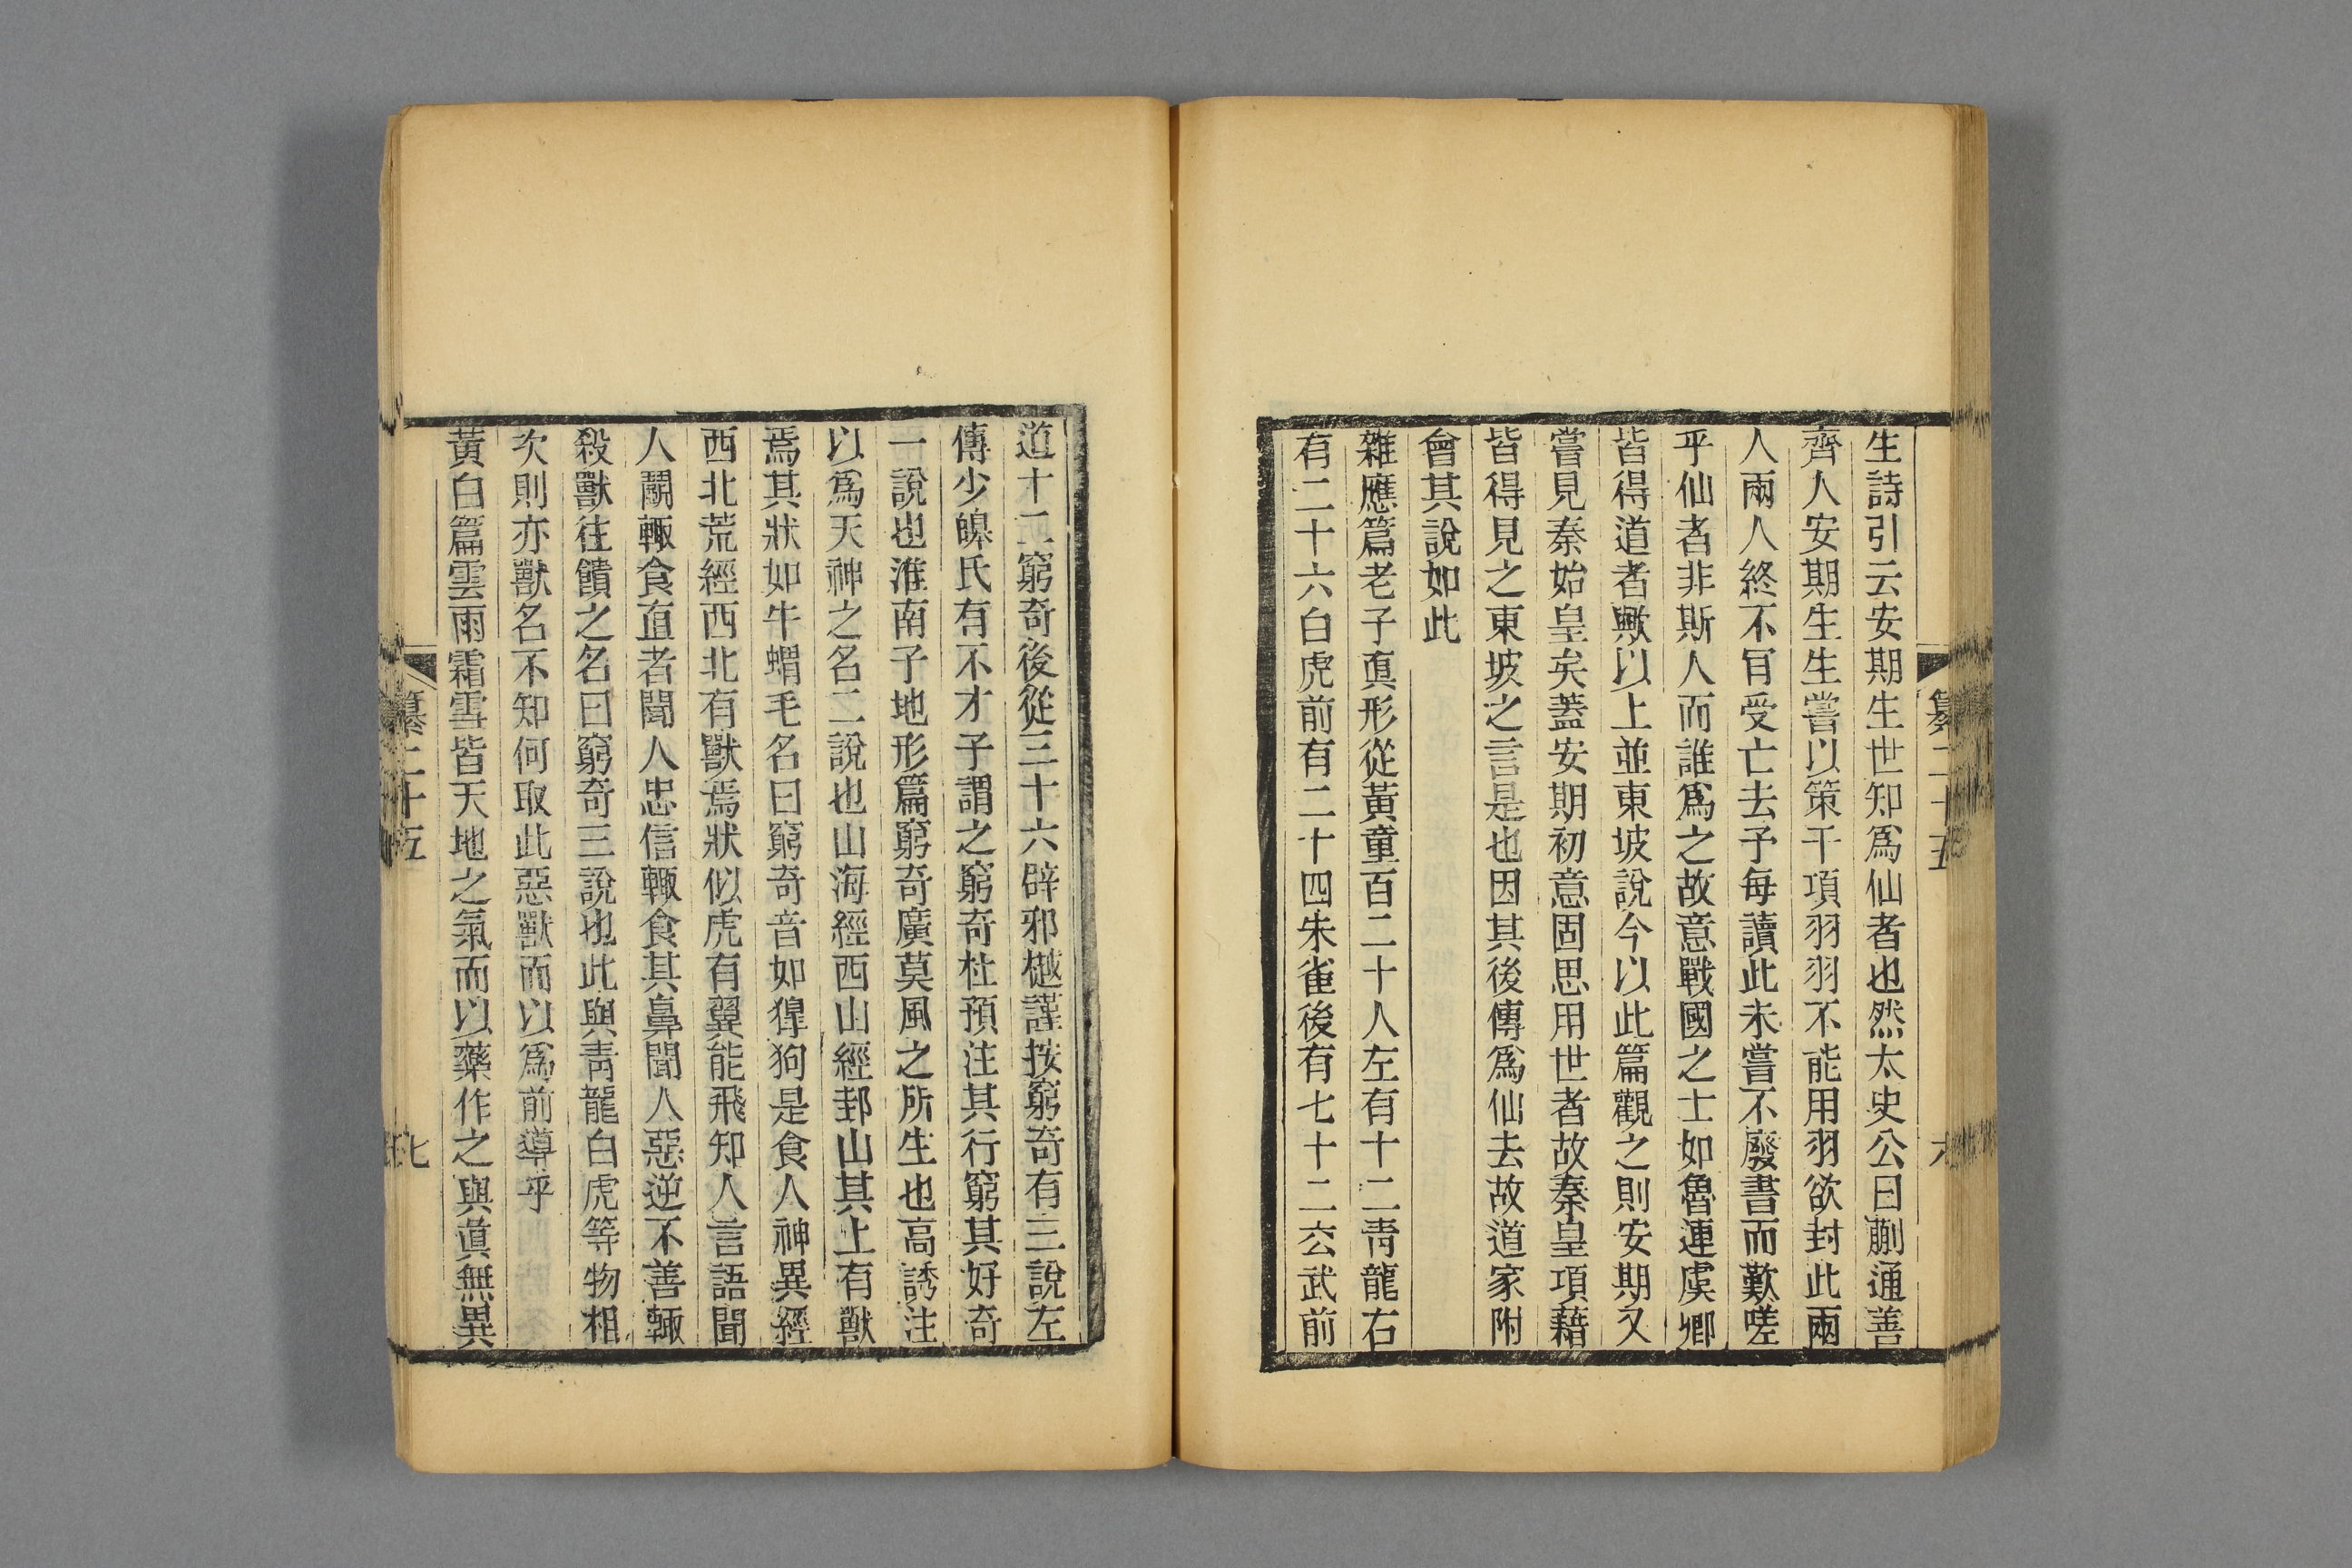 生詩引云安期生世知爲仙者也然太史公曰蒯通善
齊人安期生生嘗以策干項羽羽不能用羽欲封此兩
人兩人終不肎受亡去予每讀此未嘗不廢書而歎嗟
乎仙者非斯人而誰爲之故意戰國之士如魯連虞卿
皆得道者歟以上並東坡說今以此篇觀之則安期又
嘗見秦始皇矣蓋安期初意固思用世者故秦皇項藉
皆得見之東坡之言是也因其後傳爲仙去故道家附
會其說如此
雜應篇老子眞形從黃童百二十人左有十二靑龍右
有二十六白虎前有二十四朱雀後有七十二玄武前
道十二窮奇後從三十六辟邪樾謹按窮奇有三說左
傳少皞氏有不才子謂之窮奇杜預注其行窮其好奇
一說也淮南子地形篇窮奇廣莫風之所生也高誘注
以爲天神之名二說也山海經西山經邽山其上有獸
焉其狀如牛蝟毛名曰窮奇音如獆狗是食人神異經
西北荒經西北有獸焉狀似虎有翼能飛知人言語聞
人鬭輒食直者聞人忠信輒食其鼻聞人惡逆不善輒
殺獸往饋之名曰窮奇三說也此與靑龍白虎等物相
次則亦獸名不知何取此惡獸而以爲前導乎
黃白篇雲雨霜雪皆天地之氣而以藥作之與眞無異
纂二十五
七